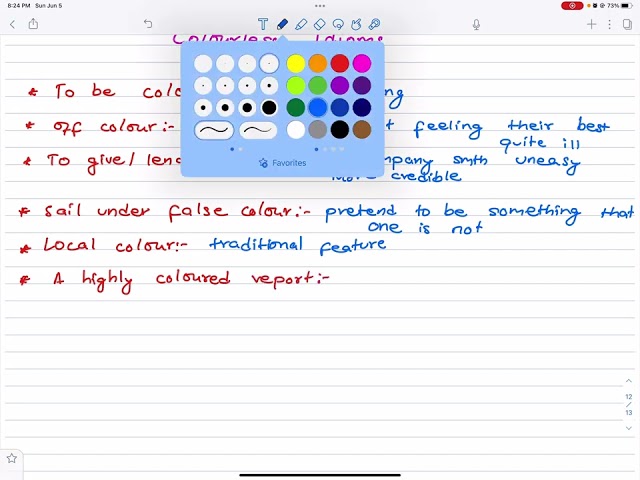 8:24 PM Sun Jun 5
73%
T
Idioms
* To be
* Off colour:- feeling their best
quite ill
* To give/ smth uneasy
credible
* Sail under false colour:- pretend to be something that
one is not
* Local colour:- traditional feature
* A highly coloured report:-
Favorites
12
/
13